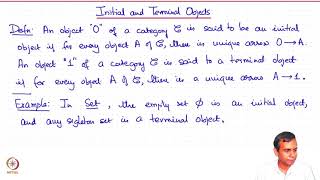 Initial and Terminal Objects
Defn: An object "0" of a category C is said to be an initial
object if for every object A of C, there is unique arrow 0→A.
An object "1" of a category C is said to a terminal object
if for every object A of C, there is a unique arrow A→1.
Example: In Set, the empty set ϕ is an initial object,
and any sigleton set is a terminal object.
NPTEL